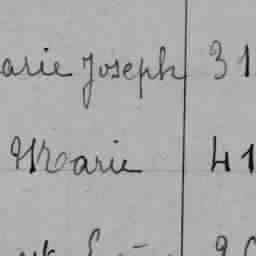 arie Joseph 31
Marie 41